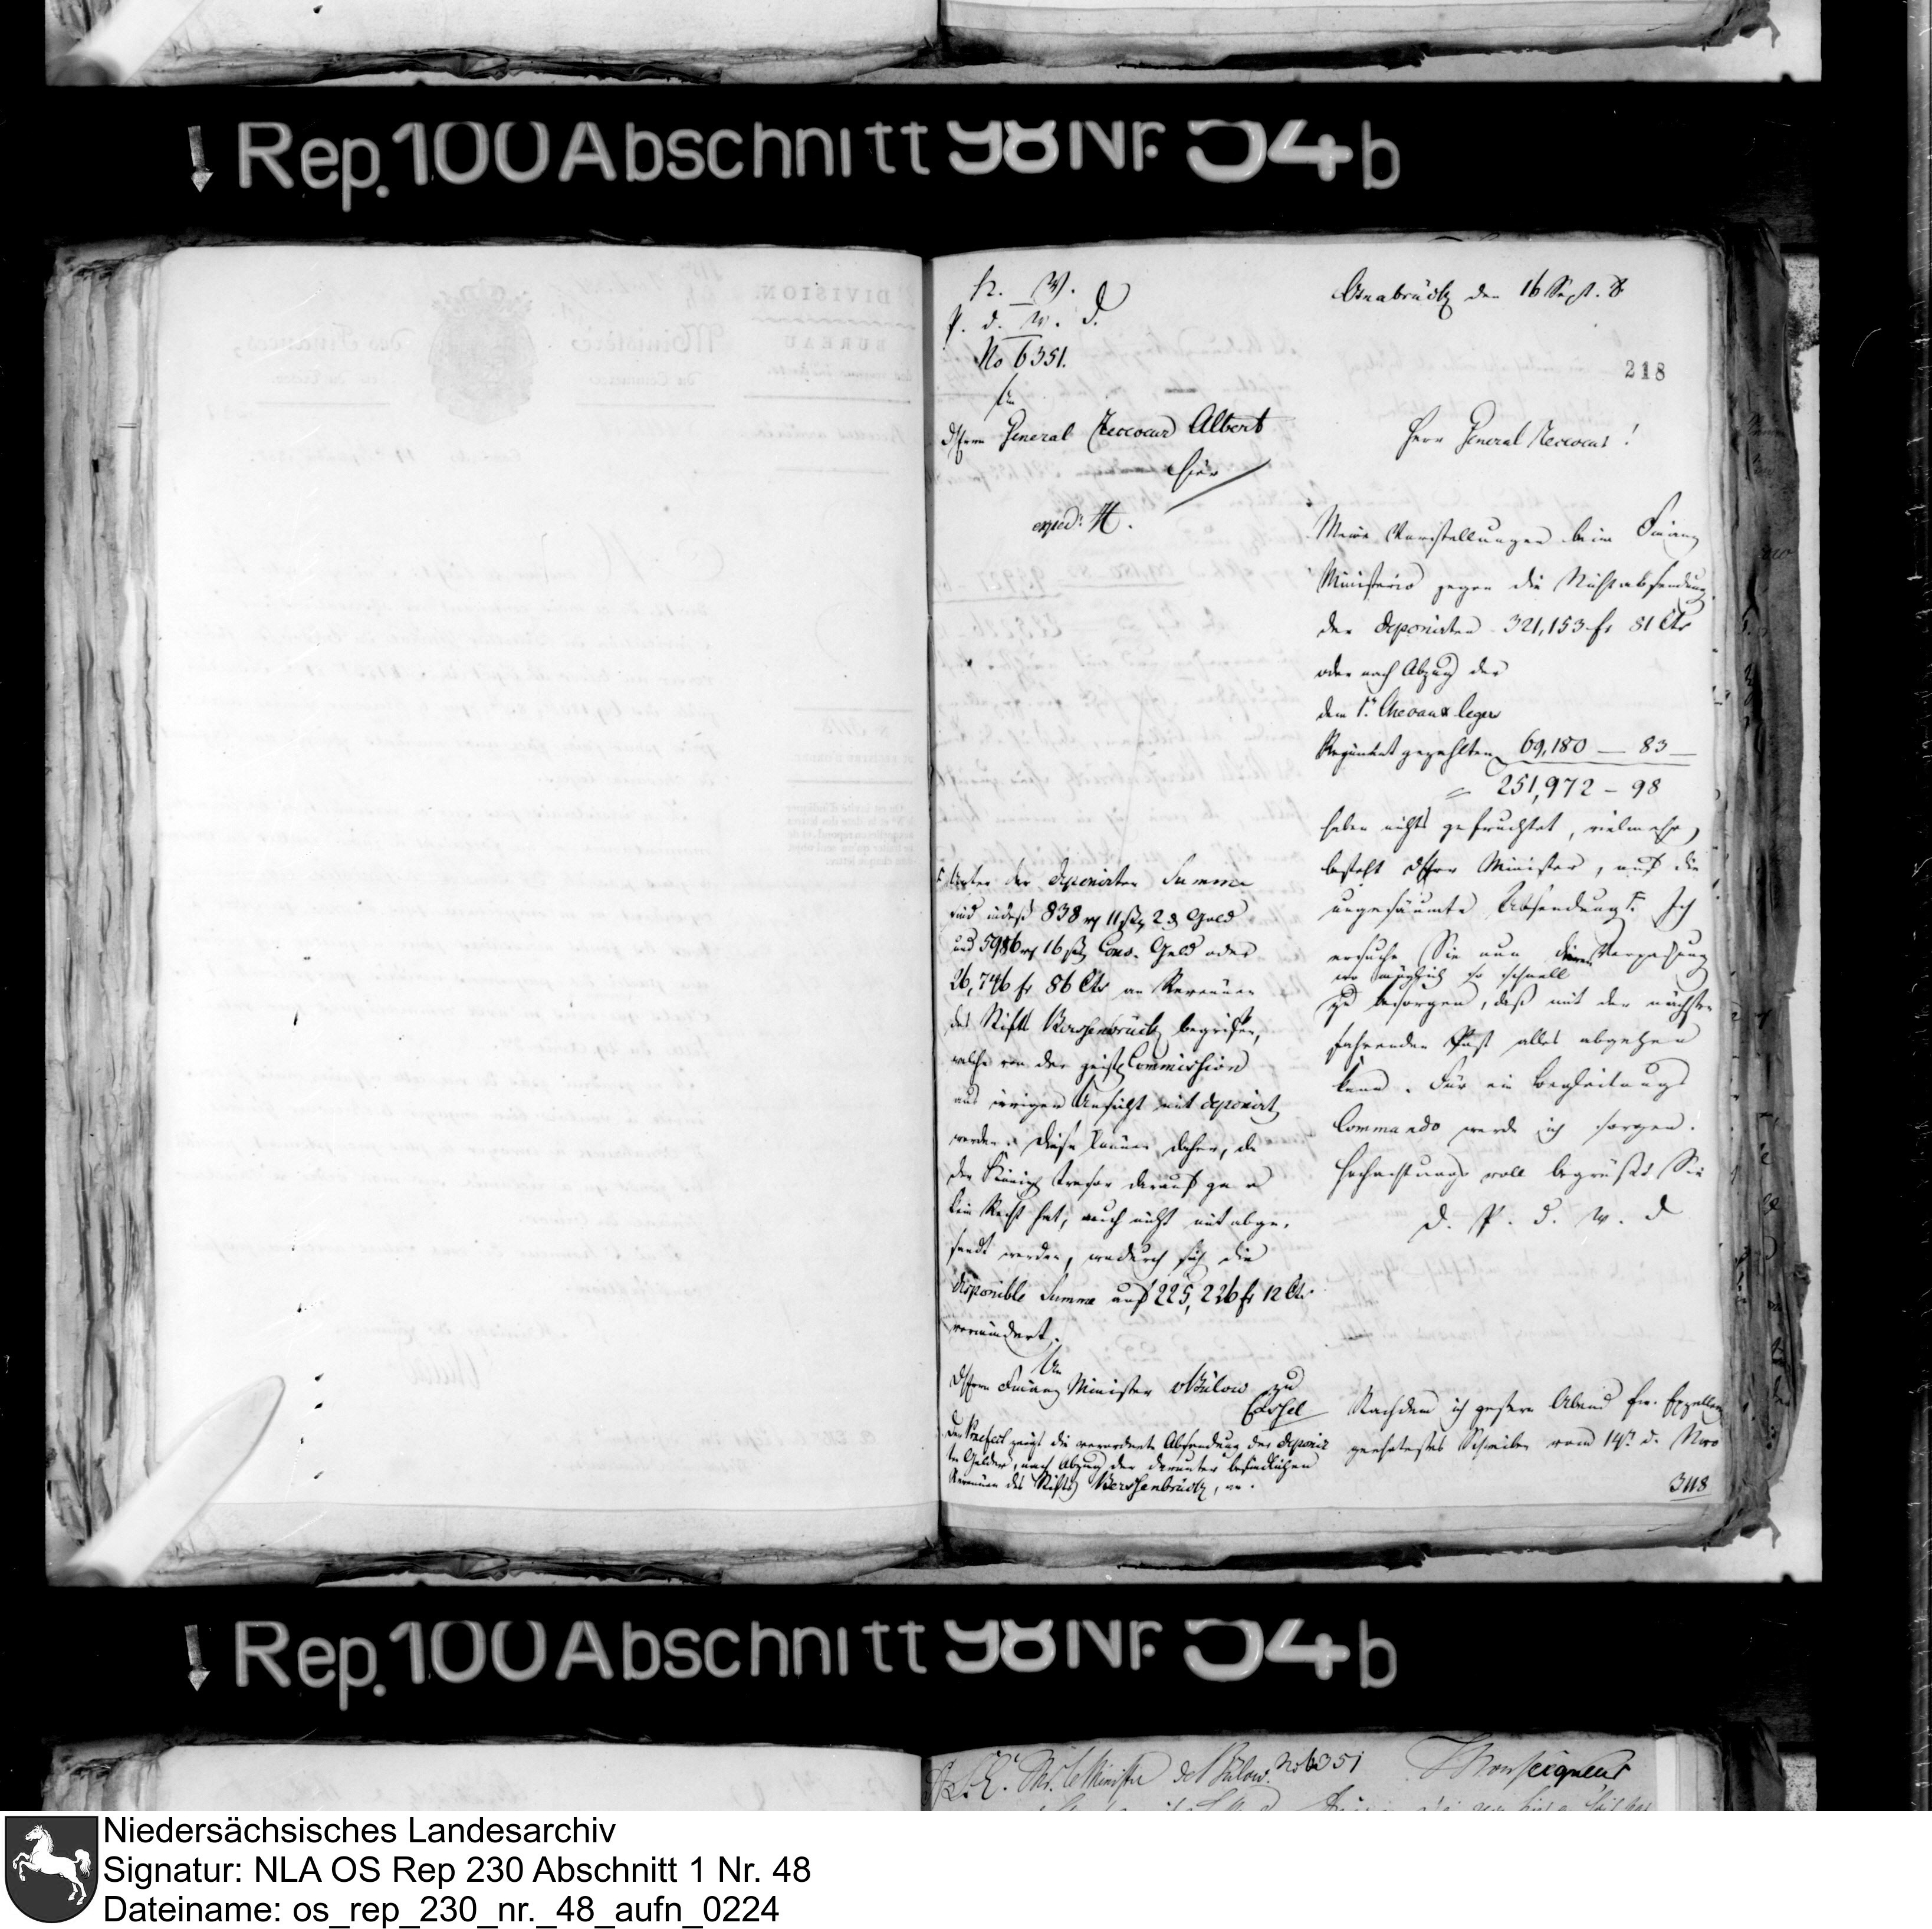 Rep. 100 Abschnitt 98 Nr. 54 b
K. W.
P. d. W. D.
No 6351.
An
d Herrn General Receveur Albert
hier
exped: H.
Osnabrück den 16 Sept. 8
218
Herr General Receveur!
Meine Vorstellungen beim Finanz
Ministerio gegen die Nichtabsendung
der deponirten 321,153 fr 81 Cts
oder nach Abzug der
dem 1n. Chevaux legers
Regiment gezahlten 69,180 — 83
= 251,972 - 98
haben nichts gefruchtet, vielmehr
besteht d Herr Minister, auf die
ungesäumte Absendung. Ich
ersuche Sie nun deren Verpackung
wo möglich so schnell
zu besorgen, daß mit der nächsten
fahrenden Post alles abgehen
kann. Für ein Begleitungs
Commando werde ich sorgen.
Hochachtungsvoll begrüßt Sie
D. P. d. W. D
Unter der deponirten Summe
sind indeß 838 rt 11 ß 2 d Gold
und 5986 rt 16 ß Conv. Geld oder
26,746 fr 86 Cts an Revenüen
des Stifts Bersenbrück begriffen,
welche von der geistl Commission
aus irriger Ansicht mit deponirt
worden. Diese können daher, da
der Königl Tresor darauf
kein Recht hat, auch nicht mit abge,
sandt werden, wodurch sich die
disponible Summe auf 225,226 fr 12 Cts
vermindert.
An
d Herrn Finanz Minister v Bülow zu
Cassel
Der Praefect zeigt die verordnete Absendung der deponir
ten Gelder, nach Abzug der darunter befindlichen
Revenüen des Stifts Bersenbrück, an.
Nachdem ich gestern Abend Ew. Excellenz
geehrtestes Schreiben vom 14n d. Nro
3118
Rep. 100 Abschnitt 98 Nr. 54 b
A S. E. Mr. le Ministre de Bülow. No 6351
Monseigneur
Niedersächsisches Landesarchiv
Signatur: NLA OS Rep 230 Abschnitt 1 Nr. 48
Dateiname: os_rep_230_nr._48_aufn_0224